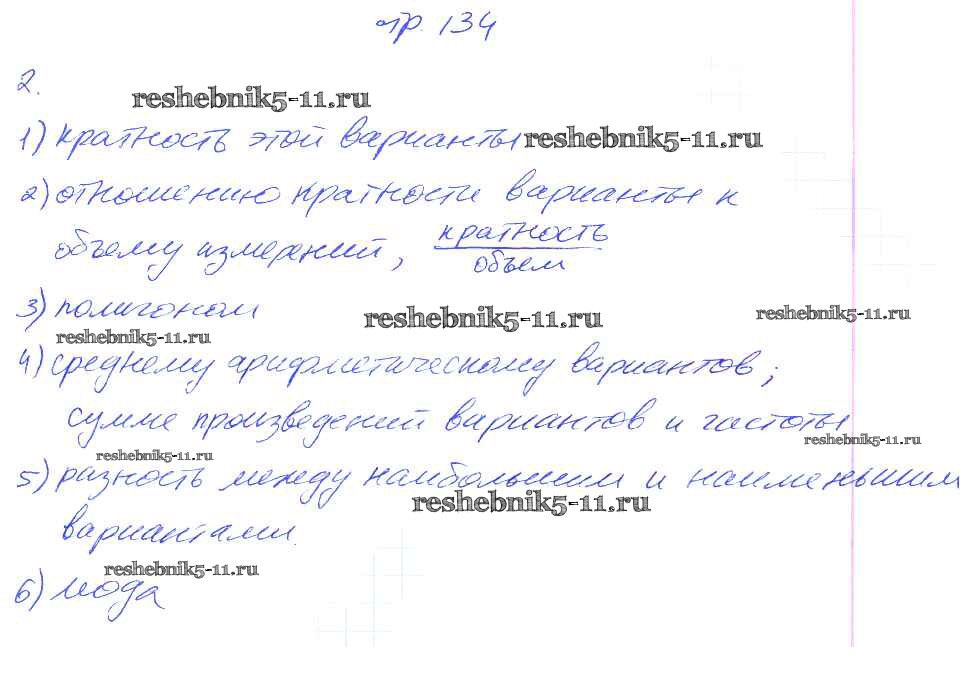 стр. 134
2.
reshebnik5-11.ru
1) кратность этой варианты reshebnik5-11.ru
2) отношению кратности варианты к
объему измерений, кратность
объем
3) полигоном
reshebnik5-11.ru
reshebnik5-11.ru
reshebnik5-11.ru
4) среднему арифметическому вариантов;
сумме произведений вариантов и частоты
reshebnik5-11.ru
reshebnik5-11.ru
5) разность между наибольшим и наименьшим
reshebnik5-11.ru
вариантами.
reshebnik5-11.ru
6) мода